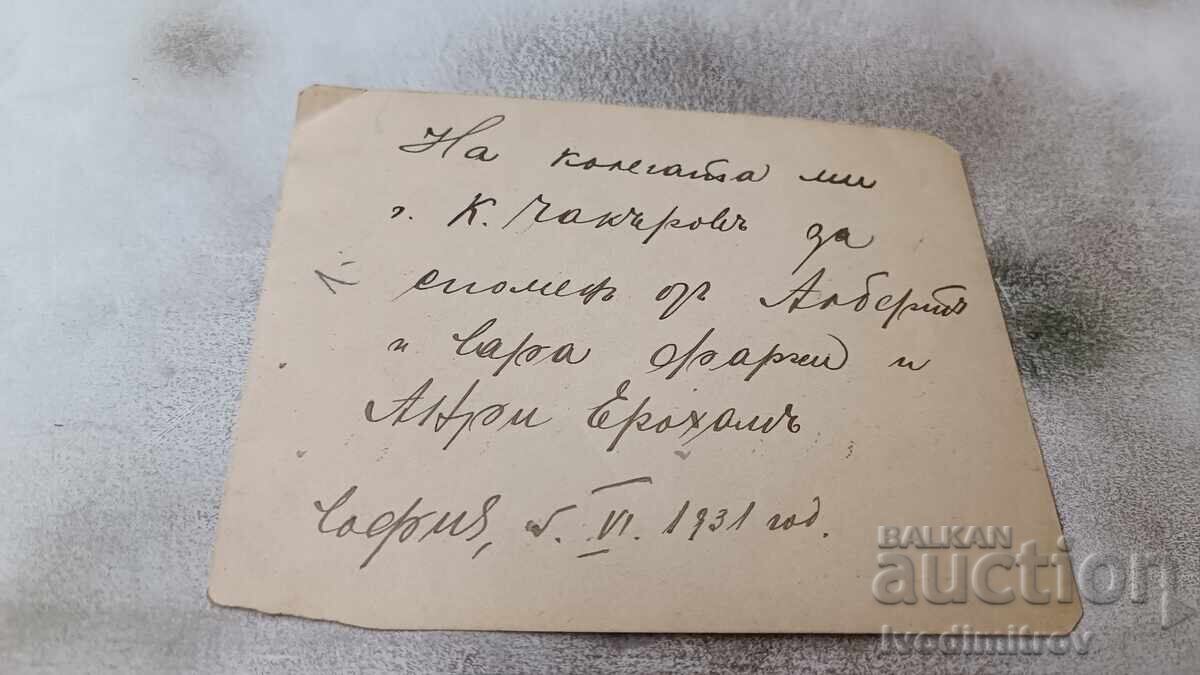 На колегата ми
г. К. Чакъровъ за
спомен отъ Албертъ
и Сара Фархи и
Анри Ерохамъ
София, 5. VI. 1931 год.
BALKAN
auction
Ivodimitrov